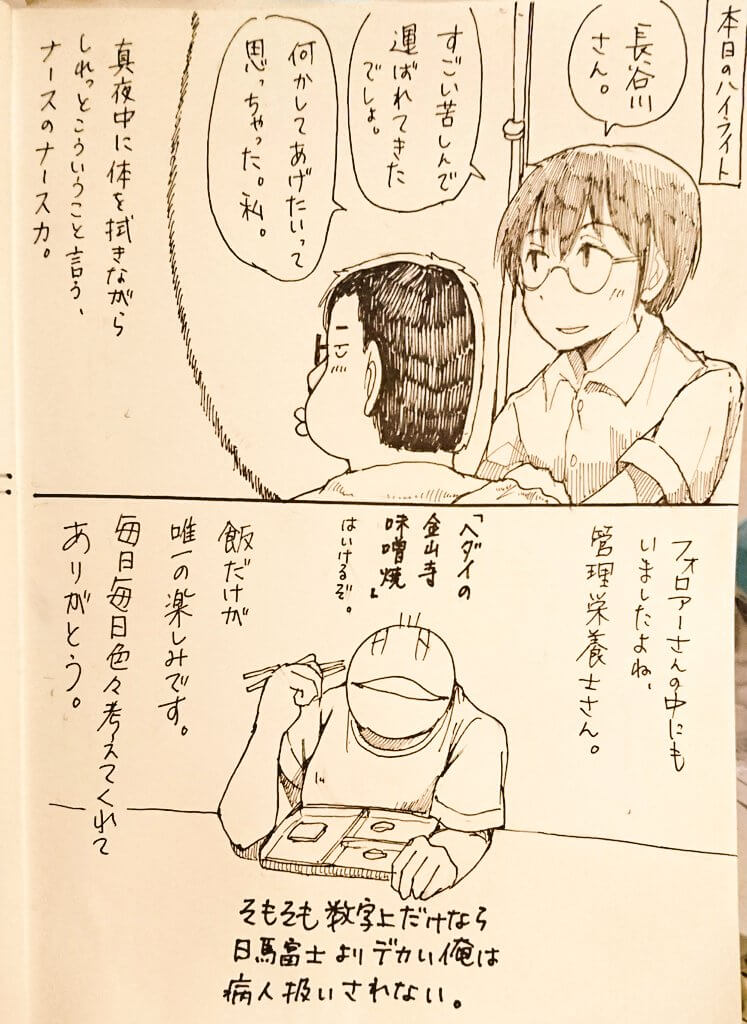 本日のハイライト
長谷川
さん。
すごい苦しんで
運ばれてきた
でしょ。
何かしてあげたいって
思っちゃった。私。
真夜中に体を拭きながら
しれっとこういうこと言う、
ナースのナース力。
フォロアーさんの中にも
いましたよね、
管理栄養士さん。
「ヘダイの
金山寺
味噌焼」
はいけるぞ。
飯だけが
唯一の楽しみです。
毎日毎日色々考えてくれて
ありがとう。
そもそも数字上だけなら
日馬富士よりデカい俺は
病人扱いされない。